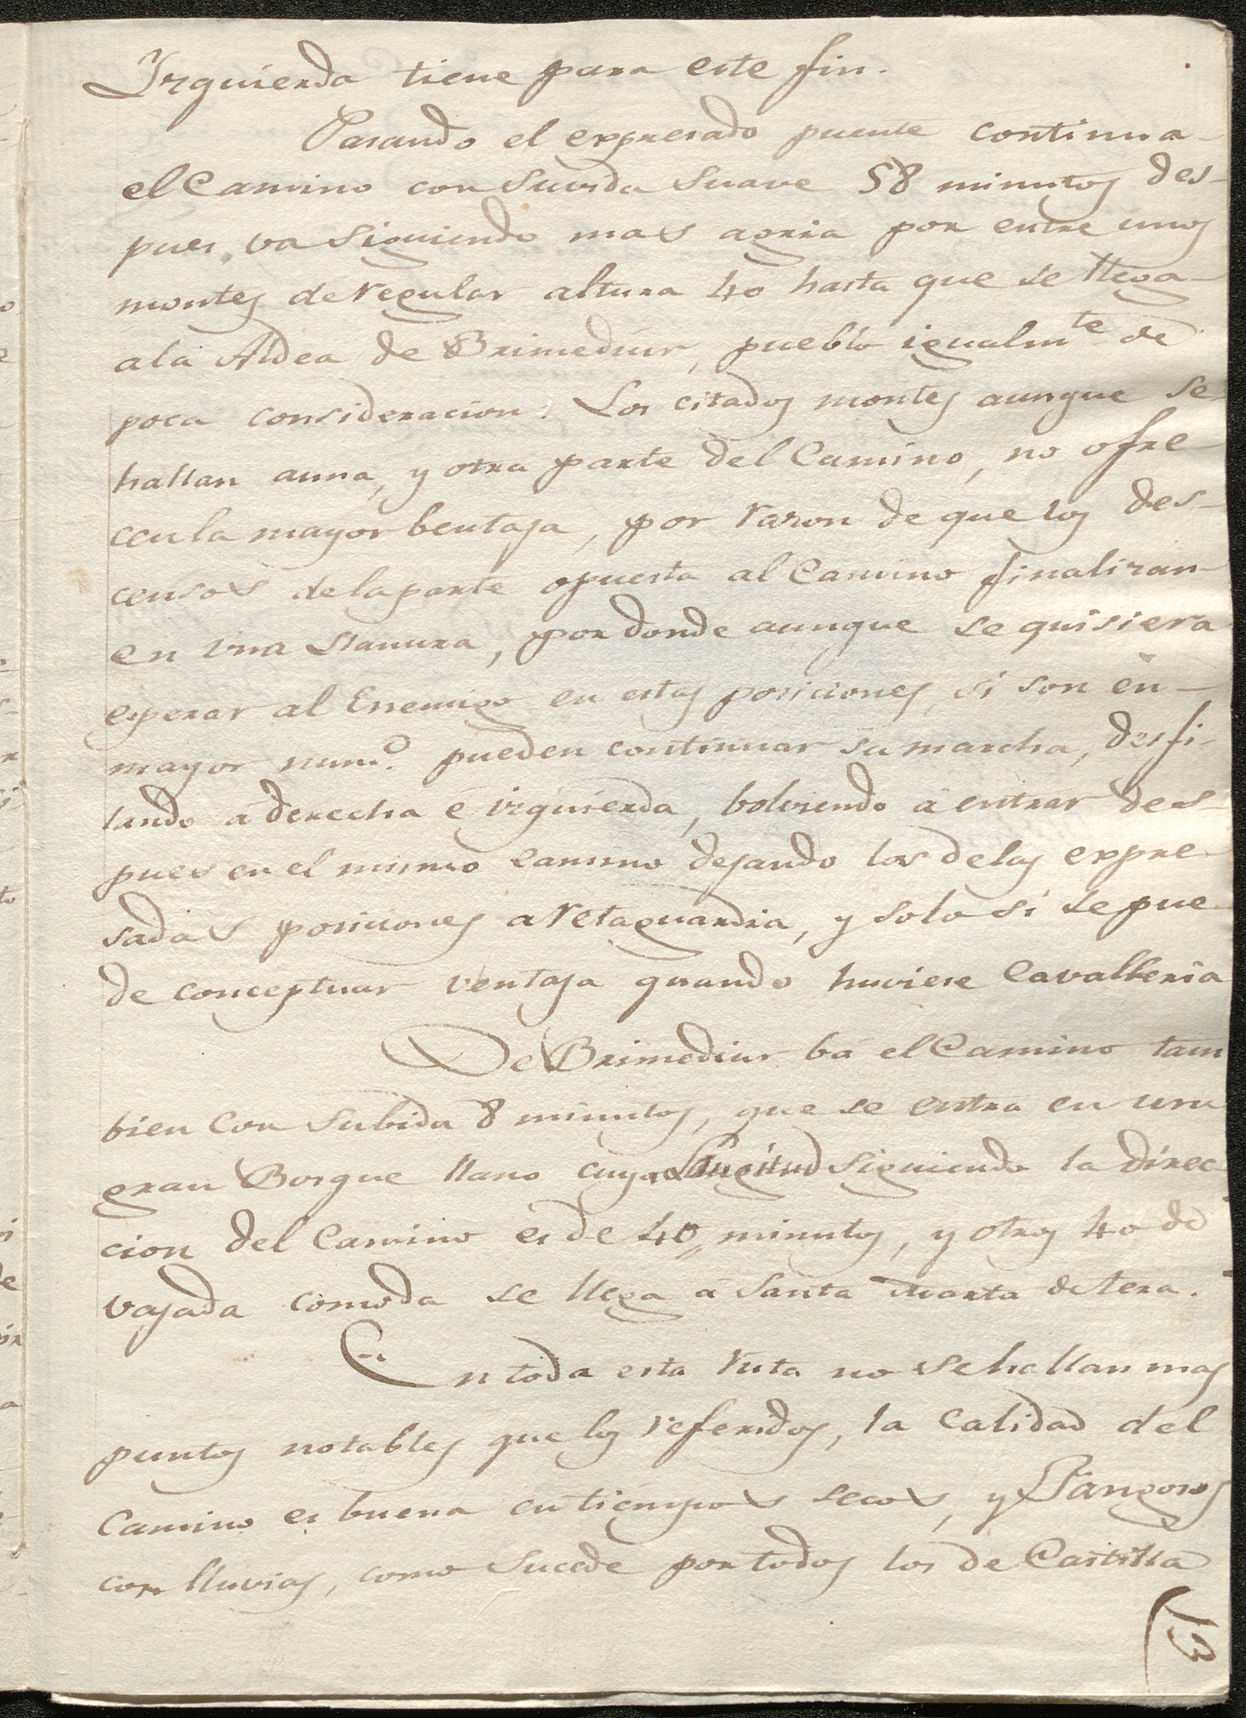 Izquierda tiene para este fin.
Pasando el expresado puente continua
el Camino con Suvida Suave 58 minutos des-
pues, va siguiendo mas agria por entre unos
montes de regular altura 40 hasta que se llega
ala Aldea de Brimediur, pueblo igualmte de
poca consideracion. Los citados montes aunque se
hallan auna, y otra parte del Camino, no ofre-
cen la mayor bentaja, por razon de que los des-
censos de la parte opuesta al Camino finalizan
en una llanura, por donde aunque se quisiera
esperar al Enemigo en estas posiciones, si son en
mayor numo. pueden continuar su marcha, desfi-
lando á derecha é izquierda, bolviendo á entrar des-
pues en el mismo camino dejando los delas expre-
sadas posiciones a retaguardia, y solo si se pue-
de conceptuar ventaja quando huviese Cavalleria
De Brimediur bá el Camino tam
bien con subida 8 minutos, que se entra en un
gran Bosque llano cuya Longitud siguiendo la direc-
cion del Camino es de 40, minutos, y otros 40 de
vajada comoda se llega á Santa Marta de tera.
En toda esta ruta no se hallan mas
puntos notables que los referidos, la Calidad del
Camino es buena en tiempos secos, y Fangosos
con lluvias, como sucede por todos los de Castilla
13